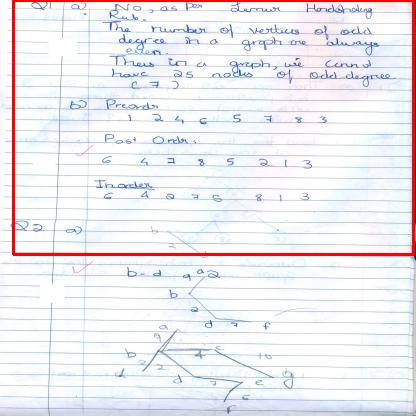 Q1 a) No, as per Lemur Handshaking
Rule.
The number of vertices of odd
degree in a graph are always
even.
Thus in a graph, we cannot
have 25 nodes of odd degree
(7)
b) Preorder
1 2 4 6 5 7 8 3
Post Order:
6 4 7 8 5 2 1 3
Inorder
6 4 2 7 5 8 1 3
Q2 a) b
2
b-d a 2
b
2
d 7 f
a
9
b 4 c 10
2 2 g
d d 7 e
6
f